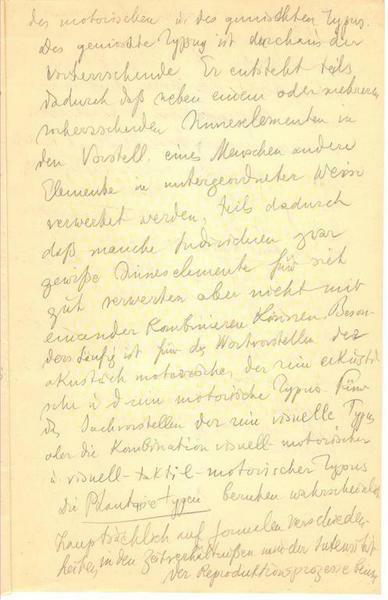 des motorischen u. des gemischten Typus.
Der gemischte Typus ist durchaus der
Vorherrschende. Er entsteht teils
dadurch daß neben einem oder mehreren
vorherrschenden Sinneselementen in
den Vorstell. eines Menschen andere
Elemente in untergeordneter Weise
verwertet werden, teils dadurch
daß manche Individuen zwar
gewiße Sinneselemente für sich
gut verwerten aber nicht mit
einander Kombinieren Können. Beson-
ders häufig ist für das Wortvorstellen der
akustisch motorische, der rein akusti-
sche u d rein motorische Typus. Für
das Sachvorstellen der rein visuelle Typus
oder die Kombination visuell-motorischer
u. visuell-taktil-motorischer Typus
Die Phantasietypen beruhen wahrscheinlich
hauptsächlich auf formalen Verschieden-
heiten, in den Zeitverhältnißen und der Intensität
der Reproduktionsprozesse